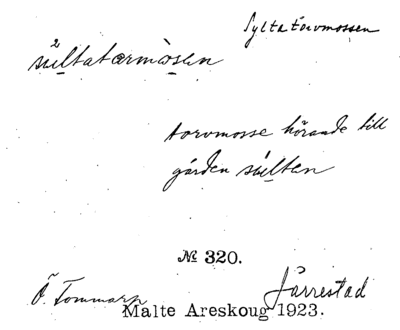 Sylta torvmossen
sùltatærmåsen
torvmosse hörande till
gården sùlten
№ 320.
Ö. Tommarp Järrestad
Malte Areskoug 1923.